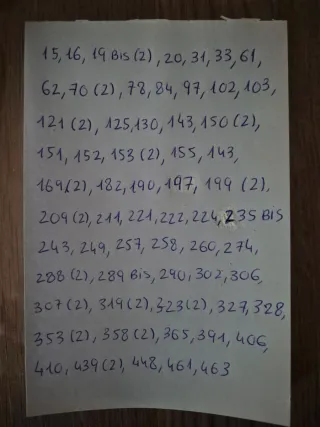 15, 16, 19 Bis (2), 20, 31, 33, 61,
62, 70 (2), 78, 84, 97, 102, 103,
121 (2), 125, 130, 143, 150 (2),
151, 152, 153 (2), 155, 143,
169 (2), 182, 190, 197, 199 (2),
209 (2), 211, 221, 222, 224, 235 Bis
243, 249, 257, 258, 260, 274,
288 (2), 289 Bis, 290, 302, 306,
307 (2), 319 (2), 323 (2), 327, 328,
353 (2), 358 (2), 365, 391, 406,
410, 439 (2), 448, 461, 463